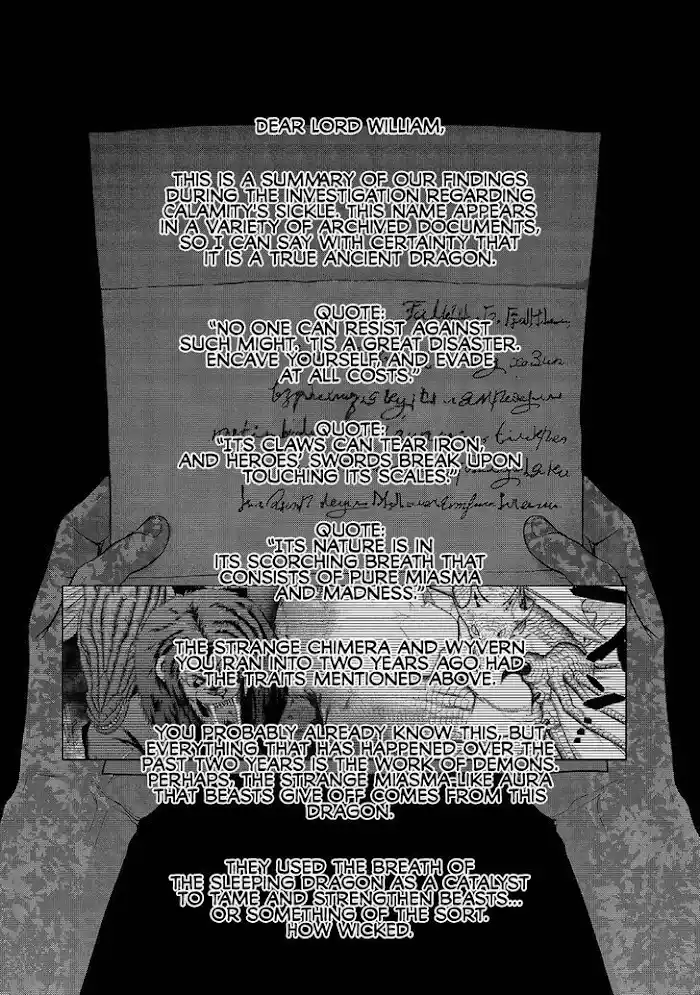 DEAR LORD WILLIAM,
THIS IS A SUMMARY OF OUR FINDINGS
DURING THE INVESTIGATION REGARDING
CALAMITY'S SICKLE. THIS NAME APPEARS
IN A VARIETY OF ARCHIVED DOCUMENTS,
SO I CAN SAY WITH CERTAINTY THAT
IT IS A TRUE ANCIENT DRAGON.
QUOTE:
"NO ONE CAN RESIST AGAINST
SUCH MIGHT. 'TIS A GREAT DISASTER.
ENCAVE YOURSELF, AND EVADE
AT ALL COSTS."
QUOTE:
"ITS CLAWS CAN TEAR IRON,
AND HEROES' SWORDS BREAK UPON
TOUCHING ITS SCALES."
QUOTE:
"ITS NATURE IS IN
ITS SCORCHING BREATH THAT
CONSISTS OF PURE MIASMA
AND MADNESS."
THE STRANGE CHIMERA AND WYVERN
YOU RAN INTO TWO YEARS AGO HAD
THE TRAITS MENTIONED ABOVE.
YOU PROBABLY ALREADY KNOW THIS, BUT
EVERYTHING THAT HAS HAPPENED OVER THE
PAST TWO YEARS IS THE WORK OF DEMONS.
PERHAPS, THE STRANGE MIASMA-LIKE AURA
THAT BEASTS GIVE OFF COMES FROM THIS
DRAGON.
THEY USED THE BREATH OF
THE SLEEPING DRAGON AS A CATALYST
TO TAME AND STRENGTHEN BEASTS...
OR SOMETHING OF THE SORT.
HOW WICKED.